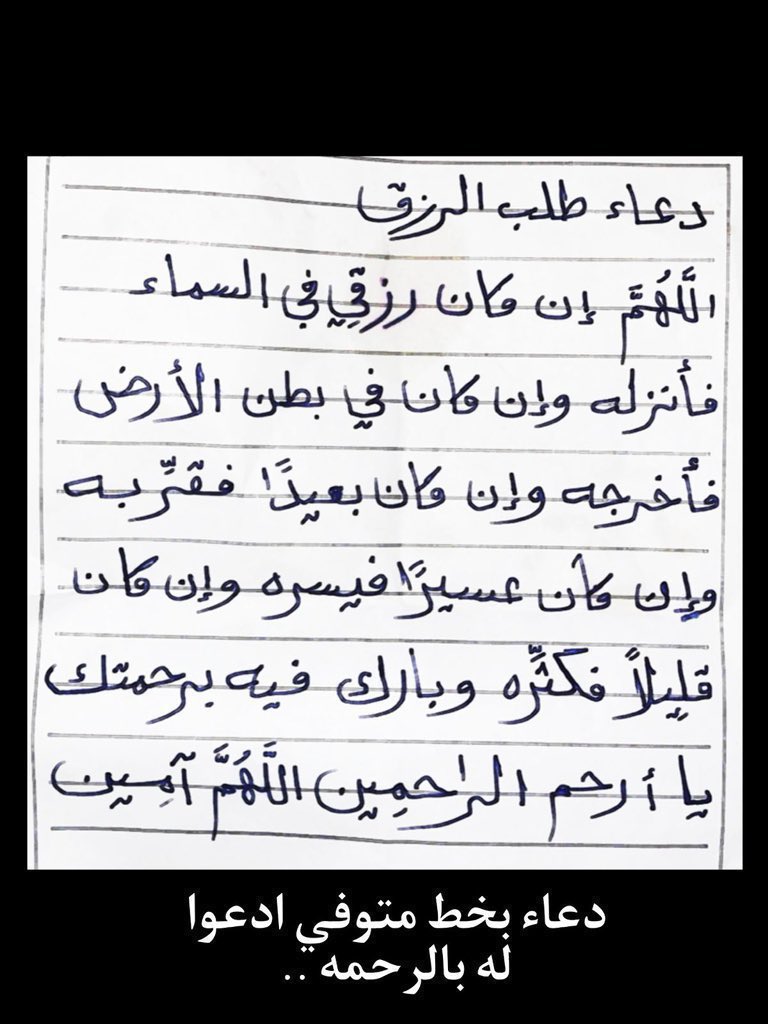 دعاء طلب الرزق
اللَّهُمَّ إن كان رزقِي في السماء
فأنزله وإن كان في بطن الأرض
فأخرجه وإن كان بعيدًا فقرِّبه
وإن كان عسيرًا فيسره وإن كان
قلِيلاً فكثِّره وبارك فيه برحمتك
يا أرحم الراحمِين اللَّهُمَّ آمِين
دعاء بخط متوفي ادعوا
له بالرحمه ..